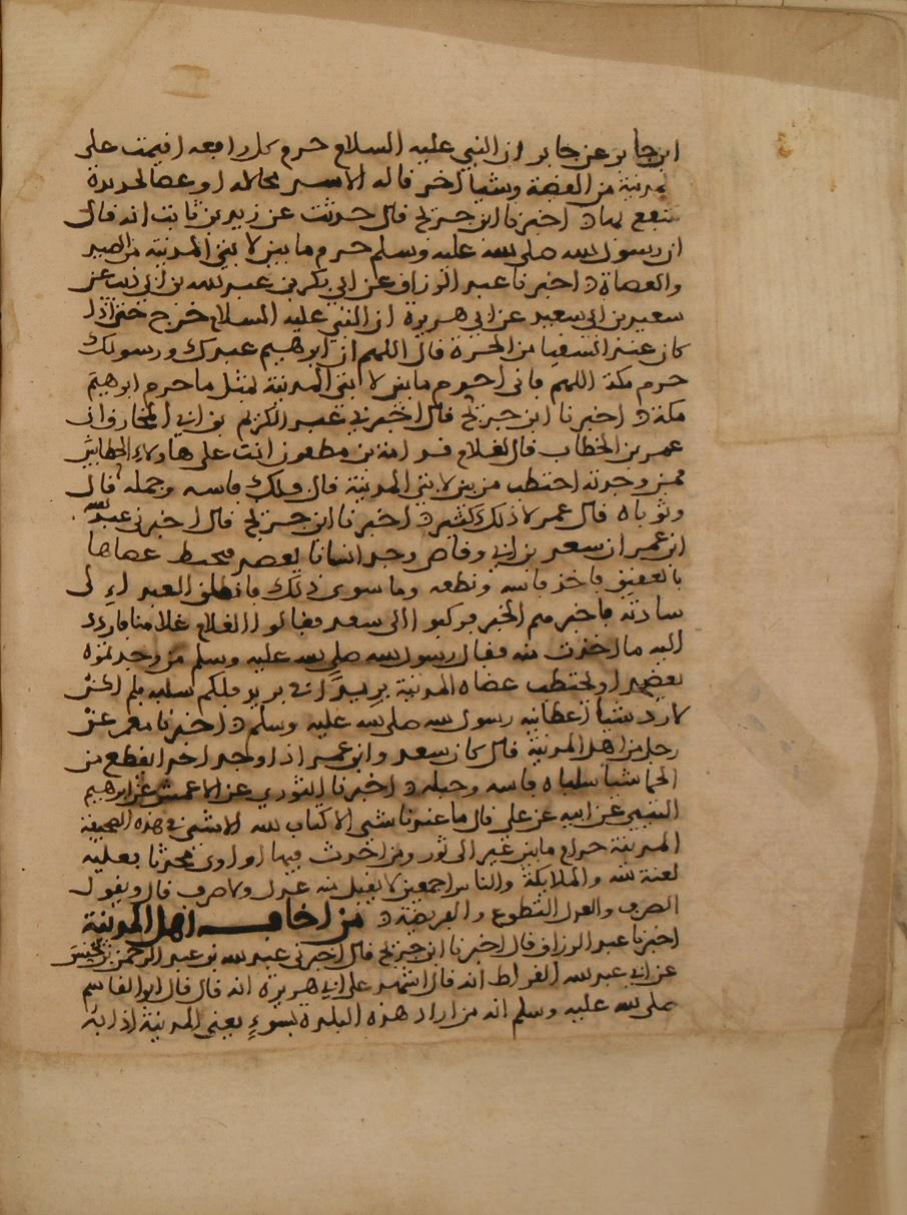 ابن جابر عن جابر ان النبي عليه السلام حرم كل رافعه اقيمت على
المدينة من العضة وشيا اخر قاله الا لمنشد ضالة او عصا لحديدة
ينتفع بها اخبرنا ابن جريج قال حدثت عن زيد بن ثابت انه قال
ان رسول الله صلى الله عليه وسلم حرم ما بين لابتي المدينة من الصيد
والعضاه اخبرنا عبد الرزاق عن ابي بكر بن عبد الله بن ابي ذيب عن
سعيد بن ابي سعيد عن ابي هريرة ان النبي عليه السلام خرج حتى اذا
كان عند السقيا من الحرة قال اللهم ان ابرهيم عبدك ورسولك
حرم مكة اللهم فاني احرم ما بين لابتي المدينة لمثل ما حرم ابرهيم
مكة اخبرنا ابن جريج قال اخبرني عبد الكريم بن ابي المخارق ان
عمر بن الخطاب قال لغلام قدامة بن مظعون انت على هاولاء الحطابين
فمن وجدته احتطب من بين لابتي المدينة فلك فاسه وحبله قال
وثوباه قال عمر لا ذلك كثير اخبرنا ابن جريج قال اخبرني عبد الله
ابن عمر ان سعد بن ابي وقاص وجد انسانا يعضد ويخبط عضاها
بالعقيق فاخذ فاسه ونطعه وما سوى ذلك فانطلق العبد الى
سادته فاخبرهم الخبر فركبوا الى سعد فقالوا الغلام غلامنا فاردد
اليه ما اخذت منه فقال رسول الله صلى الله عليه وسلم من وجدتموه
يعضد او يحتطب عضاه المدينة بريدا في بريد فلكم سلبه فلم اكن
لارد شيا اعطانيه رسول الله صلى الله عليه وسلم اخبرنا معمر عن
رجل من اهل المدينة قال كان سعد وابن عمر اذا وجدا احدا يقطع من
الحما شيا سلباه فاسه وحبله اخبرنا الثوري عن الاعمش عن ابرهيم
التيمي عن ابيه عن علي قال ما عندنا شي الا كتاب الله الا شي في هذه الصحيفة
المدينة حرام ما بين عير الى ثور ومن احدث فيها او اوى محدثا فعليه
لعنة الله والملايكة والناس اجمعين لا يقبل منه عدل ولا صرف قال ويقول
الصرف والعدل التطوع والفريضة من اخاف اهل المدينة
اخبرنا عبد الرزاق قال اخبرنا ابن جريج قال اخبرني عبد الله بن عبد الرحمن بن يحنس
عن ابي عبد الله القراظ انه قال اشهد على ابي هريرة انه قال قال ابو القاسم
صلى الله عليه وسلم انه من اراد هذه البلدة بسوء يعني المدينة اذابه